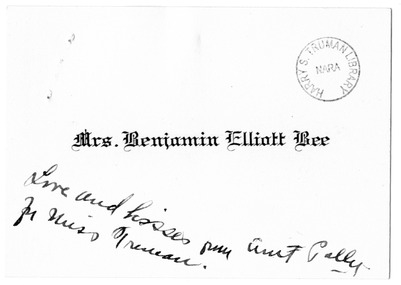 HARRY S. TRUMAN LIBRARY
NARA
Mrs. Benjamin Elliott Bee
Love and kisses from Aunt Polly
for Miss Truman.